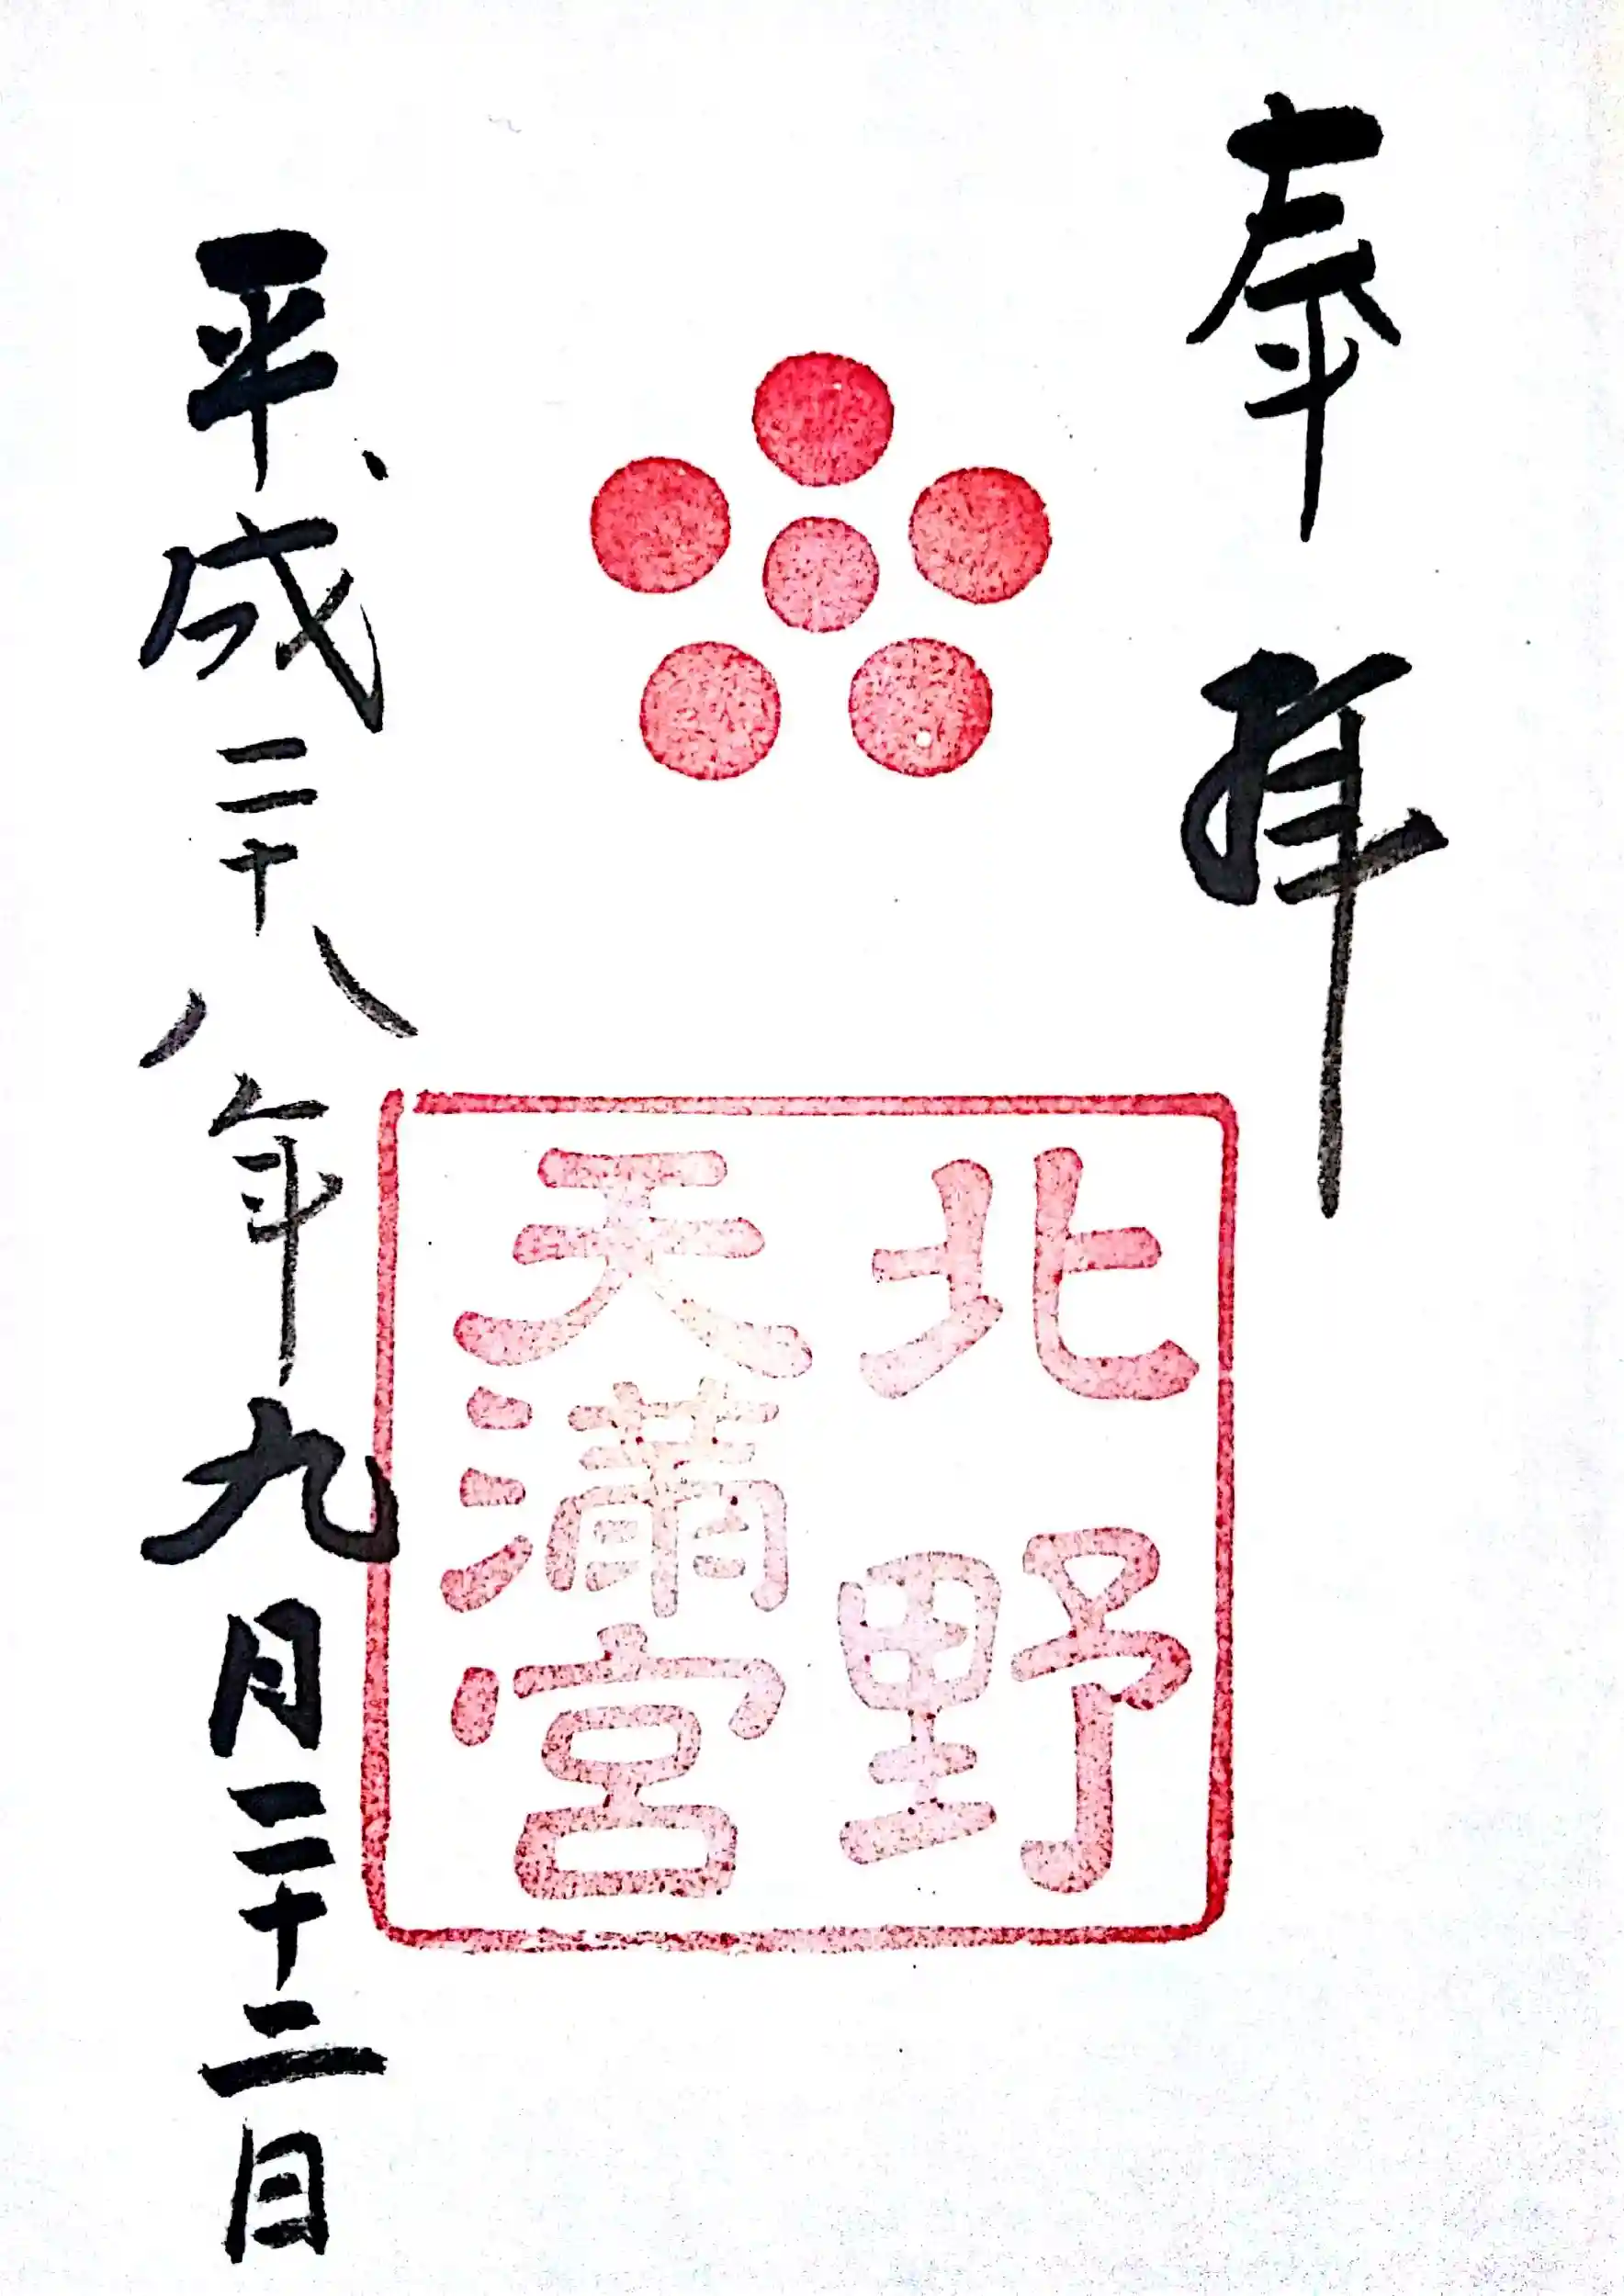 奉拝
北野
天満宮
平成二十八年九月二十二日